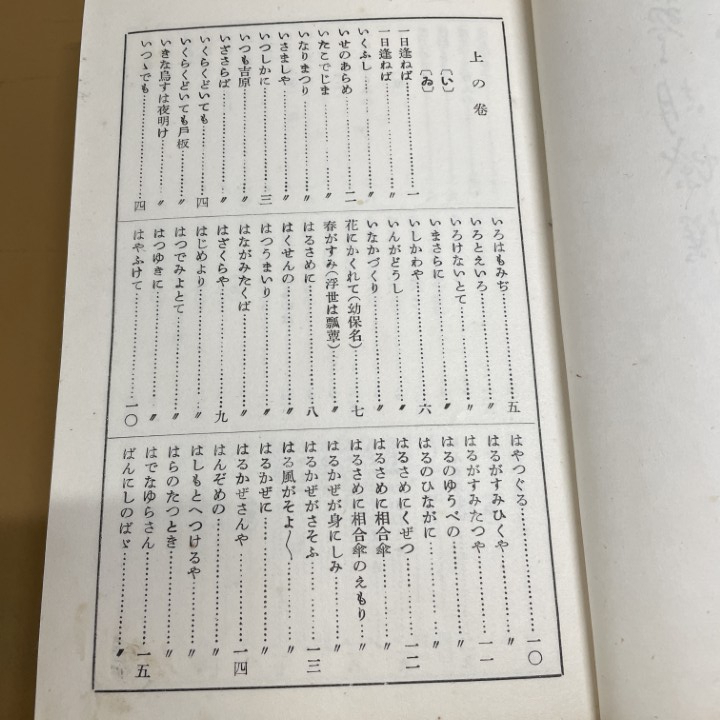 上の卷
〔い〕
〔ゐ〕
一日逢ねば……………一
一日逢ねば……………〃
いくふし……………〃
いせのあらめ……………二
いたこでじま……………〃
いなりまつり……………〃
いさましや……………〃
いつしかに……………三
いつも吉原……………〃
いざさらば……………〃
いくらくどいても……………四
いくらくどいても戸板……………〃
いきな烏すは夜明け……………〃
いつゝでも……………四
いろはもみぢ……………五
いろとえいろ……………〃
いろけないとて……………〃
いまさらに……………〃
いしかわや……………六
いんがどうし……………〃
いなかづくり……………〃
花にかくれて(幼保名)……………七
春がすみ(浮世は瓢簟)……………〃
はるさめに……………八
はくせんの……………〃
はつうまいり……………〃
はながみたくば……………〃
はざくらや……………九
はじめより……………〃
はつでみよとて……………〃
はつゆきに……………〃
はやふけて……………一〇
はやつぐる……………一〇
はるがすみひくや……………〃
はるがすみたつや……………一一
はるのゆうべの……………〃
はるのひながに……………〃
はるさめにくぜつ……………一二
はるさめに相合傘……………〃
はるさめに相合傘のえもり……………〃
はるかぜが身にしみ……………〃
はるかぜがさそふ……………一三
はる風がそよ〱……………〃
はるかぜに……………〃
はるかぜさんや……………一四
はんぞめの……………〃
はしもとへつけるや……………〃
はらのたつとき……………〃
はでなゆらさん……………一五
ばんにしのばゞ……………〃